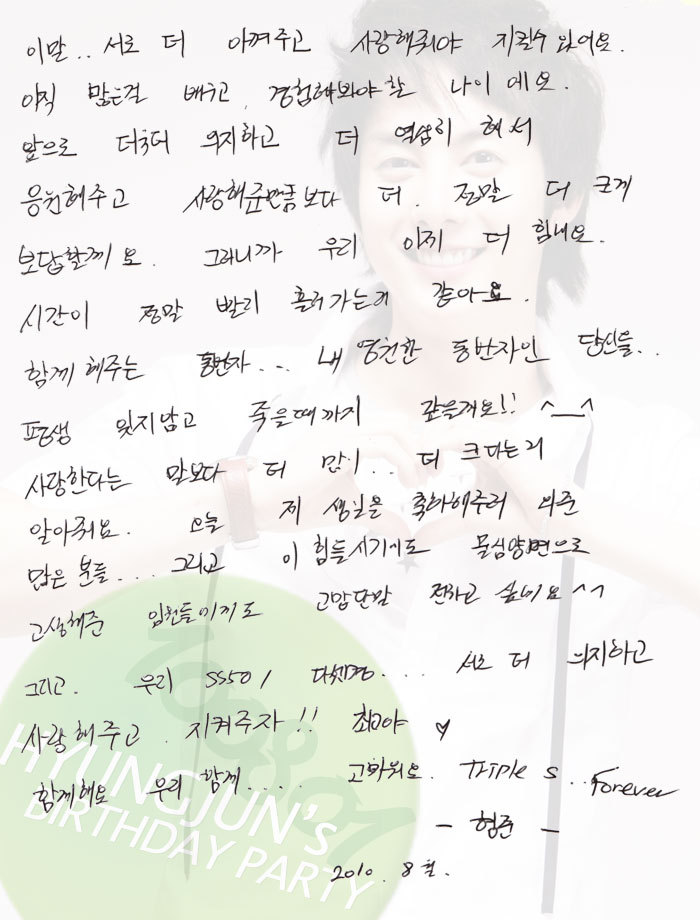 이말.. 서로 더 아껴주고 사랑해줘야 지킬수 있어요.
아직 많은걸 배우고, 경험해봐야할 나이에요.
앞으로 더욱더 의지하고 더 열심히 해서
응원해주고 사랑해준만큼보다 더. 정말 더 크게
보답할께요. 그러니까 우리 이제 더 힘내요.
시간이 정말 빨리 흘러가는거 같아요.
함께해주는 동반자... 내 영원한 동반자인 당신들..
평생 잊지않고 죽을때까지 갚을게요!! ^__^
사랑한다는 말보다 더 많이.. 더 크다는거
알아줘요. 오늘 제 생일을 축하해주러 와준
많은 분들.... 그리고 이 힘들시기에도 물심양면으로
고생해준 임원들에게도 고맙단말 전하고 싶네요 ^^
그리고. 우리 SS501 다섯명.... 서로 더 의지하고
사랑해주고. 지켜주자!! 최고야 ♥
함께해요 우리 함께..... 고마워요. Triple S.. Forever
- 형준 -
2010. 8월.
100807
HYUNGJUN's
BIRTHDAY PARTY